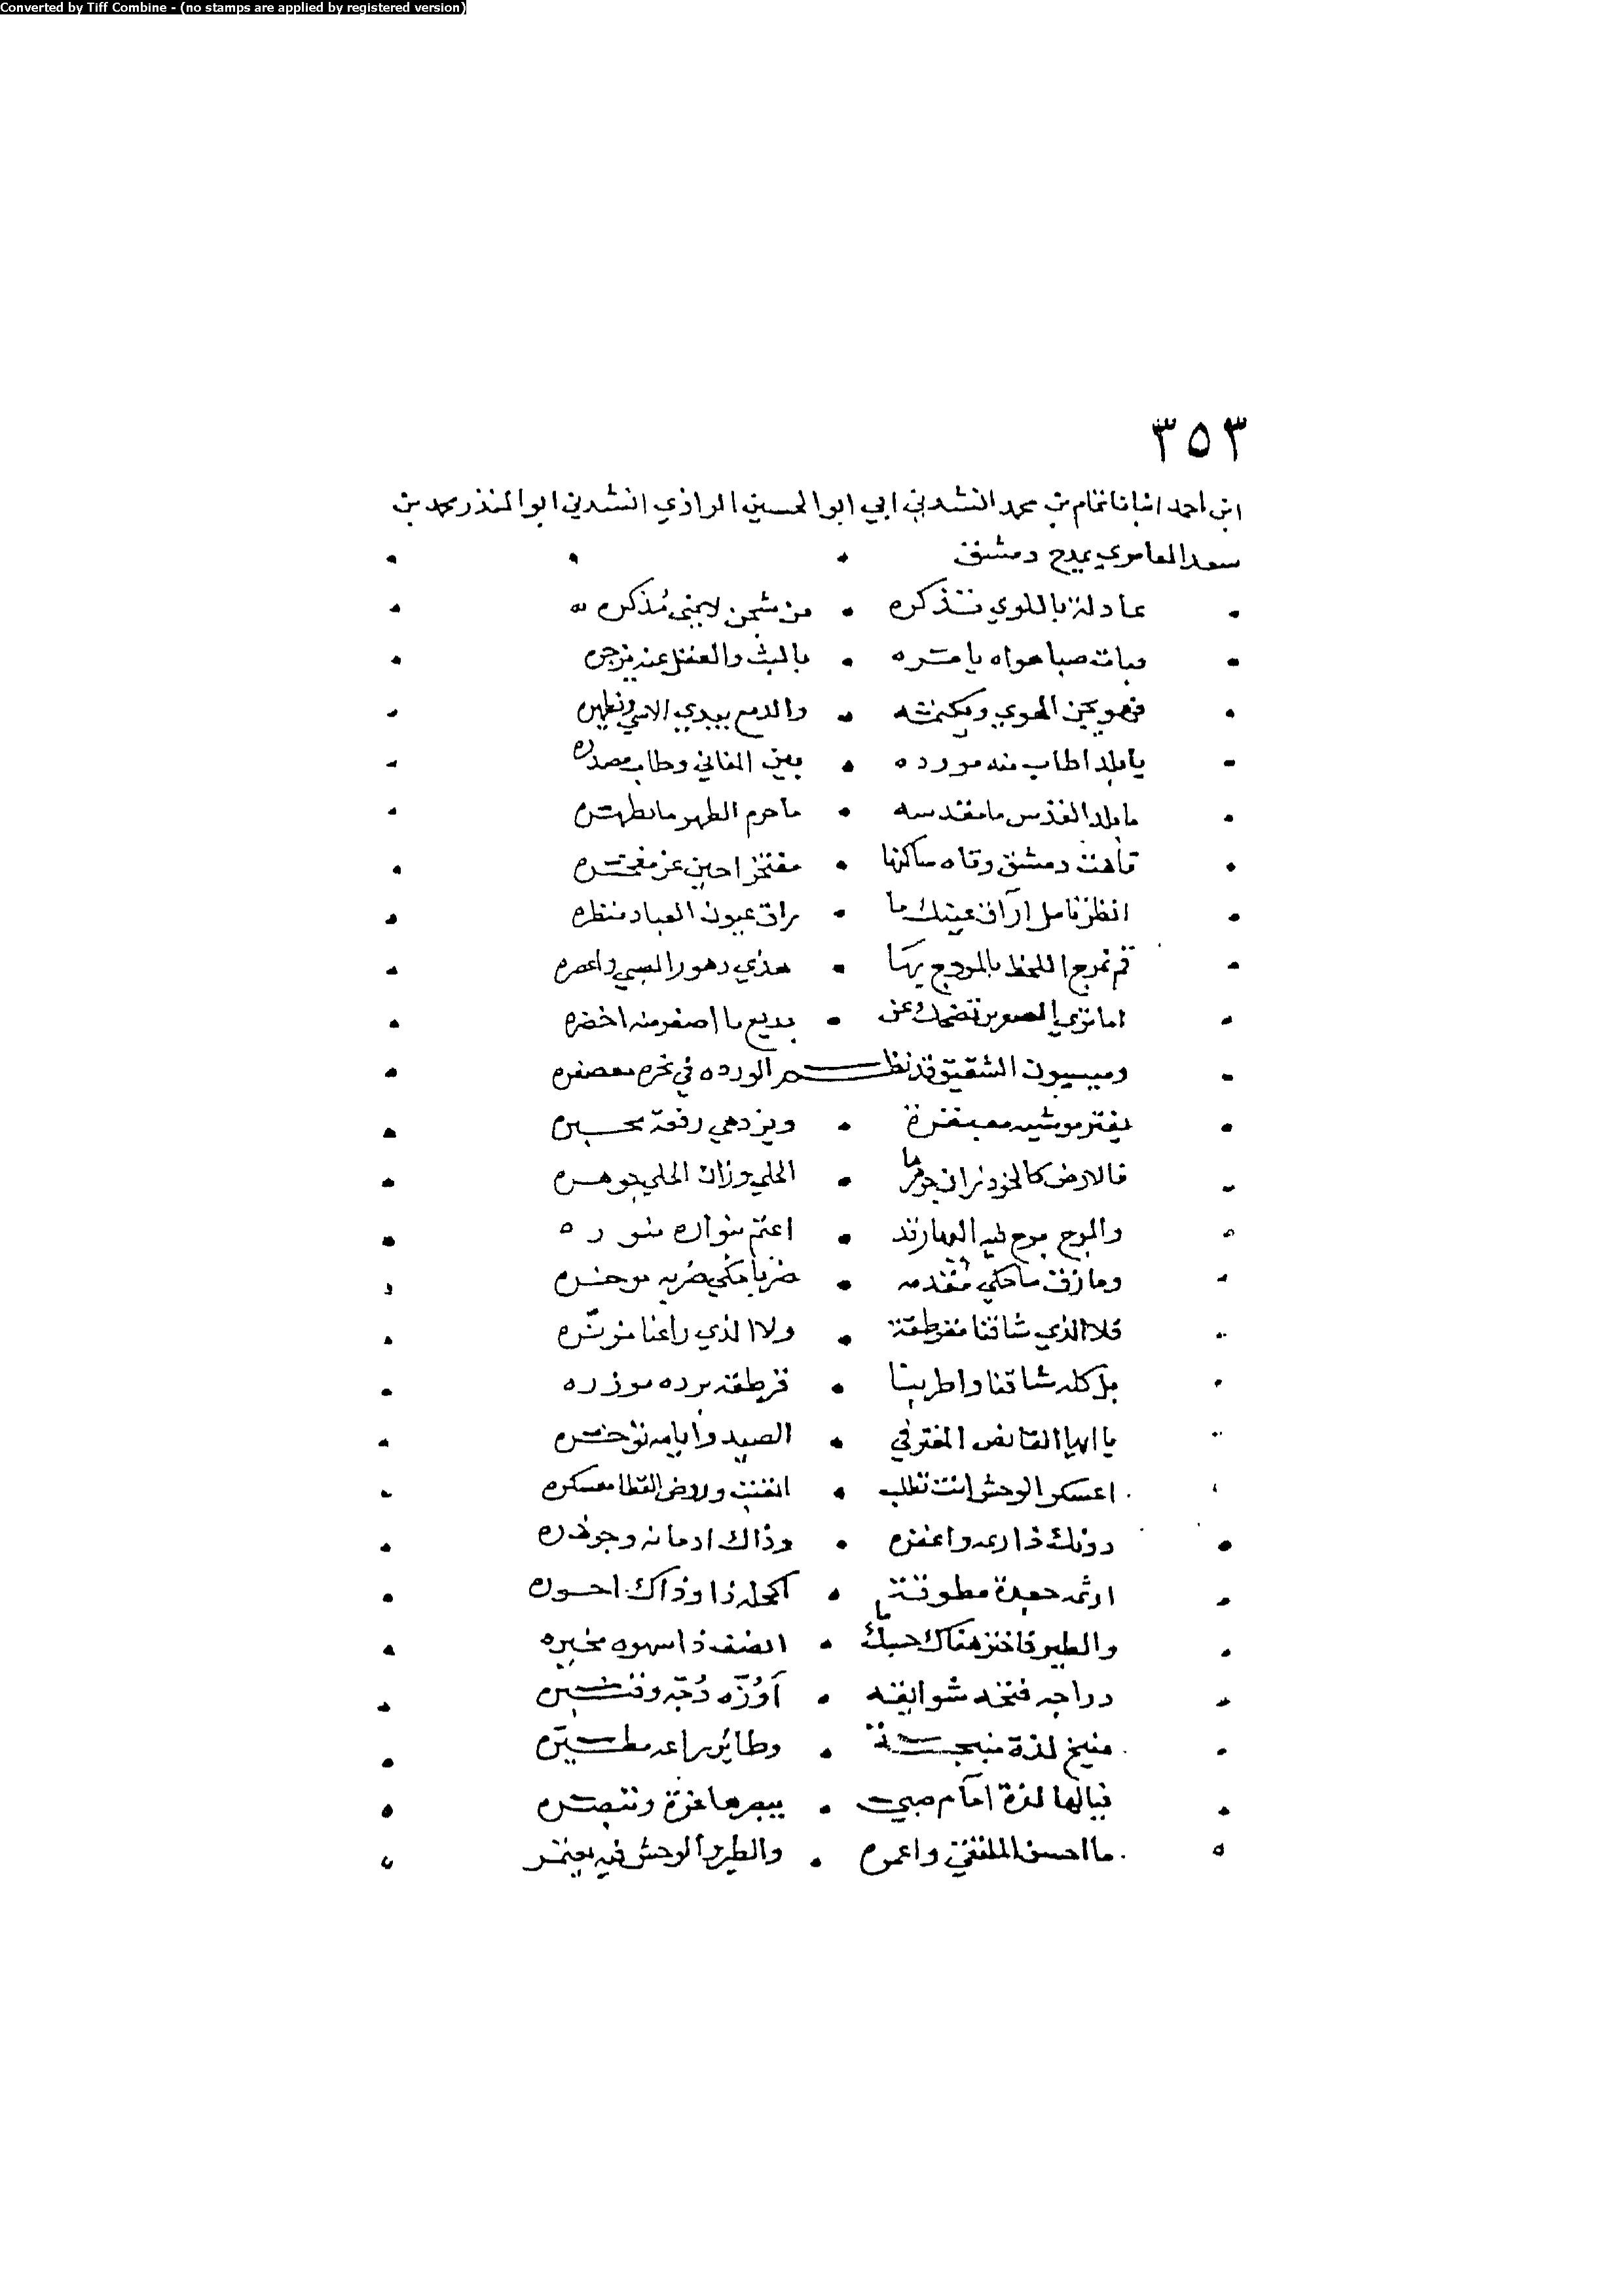 Converted by Tiff Combine - (no stamps are applied by registered version)
٣٥٣
ابن احمد انبانا تمام بن محمد انشدني ابي ابو الحسين الرازي انشدني ابو المنذر محمد بن
سعد العامري يمدح دمشق
عادله باللوي تذكره من شجن لا يني مذكره
وبات صبا هواه يامره بالبث والعقل عنه يزجره
فهو يجن الهوي ويكتمه والدمع يبدي الاسي ويظهره
يا بلدا طاب منه مورده بعين المغاني وطاب مصدره
ما بلد القدس ما مقدسه ما حرم الطهر ما مطهره
تاهت دمشق وتاه ساكنها مفتخرا حين عز مفخره
انظر تامل اراق عينك ما راق عيون العباد منظره
قم نمرج اللحظ بالمروج بها هذي دهور الصبي واعصره
اما تري تضحك عن بديع ما اصفر منه اخضره
الشقيق قد نظم الورده في نحره معصفره
يفتر موشيه ويزدهي رفعة محبره
فالارض كالخود زان جوهرها الحلي وزان الحلي جوهره
والمرج مرج فيه البهار قد اعتم بنواره منوره
وما زف ما حكي مقدمه ضربا حكي ضربه موخره
فلا الذي شاقنا مقرطقة ولا الذي راعنا مزنره
بل كله شاقنا واطربنا قرطقه برده موزره
يا ايها القانص المفتر في الصيد وايامه توخره
اعسكر الوحش انت تطلب القنب وروض القطا معسكره
دونك ذا ريمه واعفره وذاك ادمانه وجوذره
مطوقة اكحله ذا وذاك احوره
والطير فاختر هناك حبك ما مخيره
دراجه فتخه شوانقه اوزه دبجه وقنبره
لذة وطائر راعه مطيره
فيالها لذة امام صبي يبصرها غزة وتبصره
ما احسن الملتقي واعمره والطير والوحش فيه